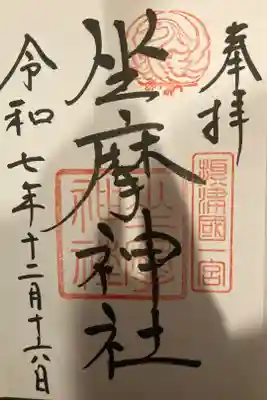 奉拝
摂津國一宮
坐摩神社
令和七年十二月十六日